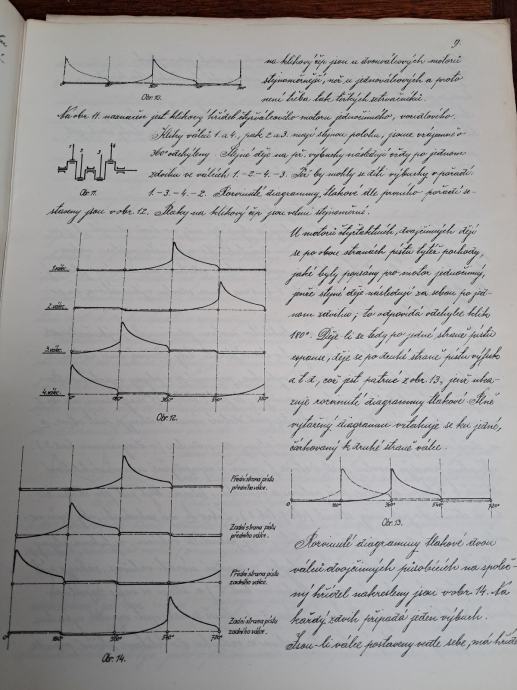 9.
na klikový čep jsou u dvouválcových motorů
stejnoměrnější, než u jednoválcových a proto
není třeba tak těžkých setrvačníků.
Obr. 10.
Na obr. 11. naznačen jest klikový hřídel čtyřválcového motoru jednočinného, variabilního.
Kliky válců 1. a 4., pak 2. a 3. mají stejnou polohu, jsouce vzájemně o
360° odchýleny. Stejné děje na př. výbuchy následují vždy po jednom
zdvihu ve válcích 1. - 2. - 4. - 3. Též by mohly se díti výbuchy v pořadí
Obr. 11.
1. - 3. - 4. - 2. Rozvinuté diagrammy tlakové dle prvního pořadí se-
staveny jsou v obr. 12. Tlaky na klikový čep jsou velmi stejnoměrné.
1. válec.
2. válec.
3. válec.
4. válec.
0° 180° 360° 540° 720°
Obr. 12.
U motorů čtyřtaktních, dvojčinných dějí
se po obou stranách pístu tytéž pochody,
jaké byly popsány pro motor jednočinný,
jenže stejné děje následují za sebou po jed-
nom zdvihu; to odpovídá odchylce klik
180°. Děje-li se tedy po jedné straně pístu
expanse, děje se po druhé straně pístu výfuk
a t. d., což jest patrné z obr. 13., jenž uka-
zuje rozvinuté diagrammy tlakové. Plně
vytažený diagramm vztahuje se ku jedné,
čárkovaný k druhé straně válce.
180° 360° 540° 720°
Obr. 13.
Přední strana pístu
předního válce.
Zadní strana pístu
předního válce.
Přední strana pístu
zadního válce.
Zadní strana pístu
zadního válce.
0° 180° 360° 540° 720°
Obr. 14.
Rozvinuté diagrammy tlakové dvou
válců dvojčinných působících na společ-
ný hřídel nakresleny jsou v obr. 14. Na
každý zdvih připadá jeden výbuch.
Jsou-li válce postaveny vedle sebe, má hřídel